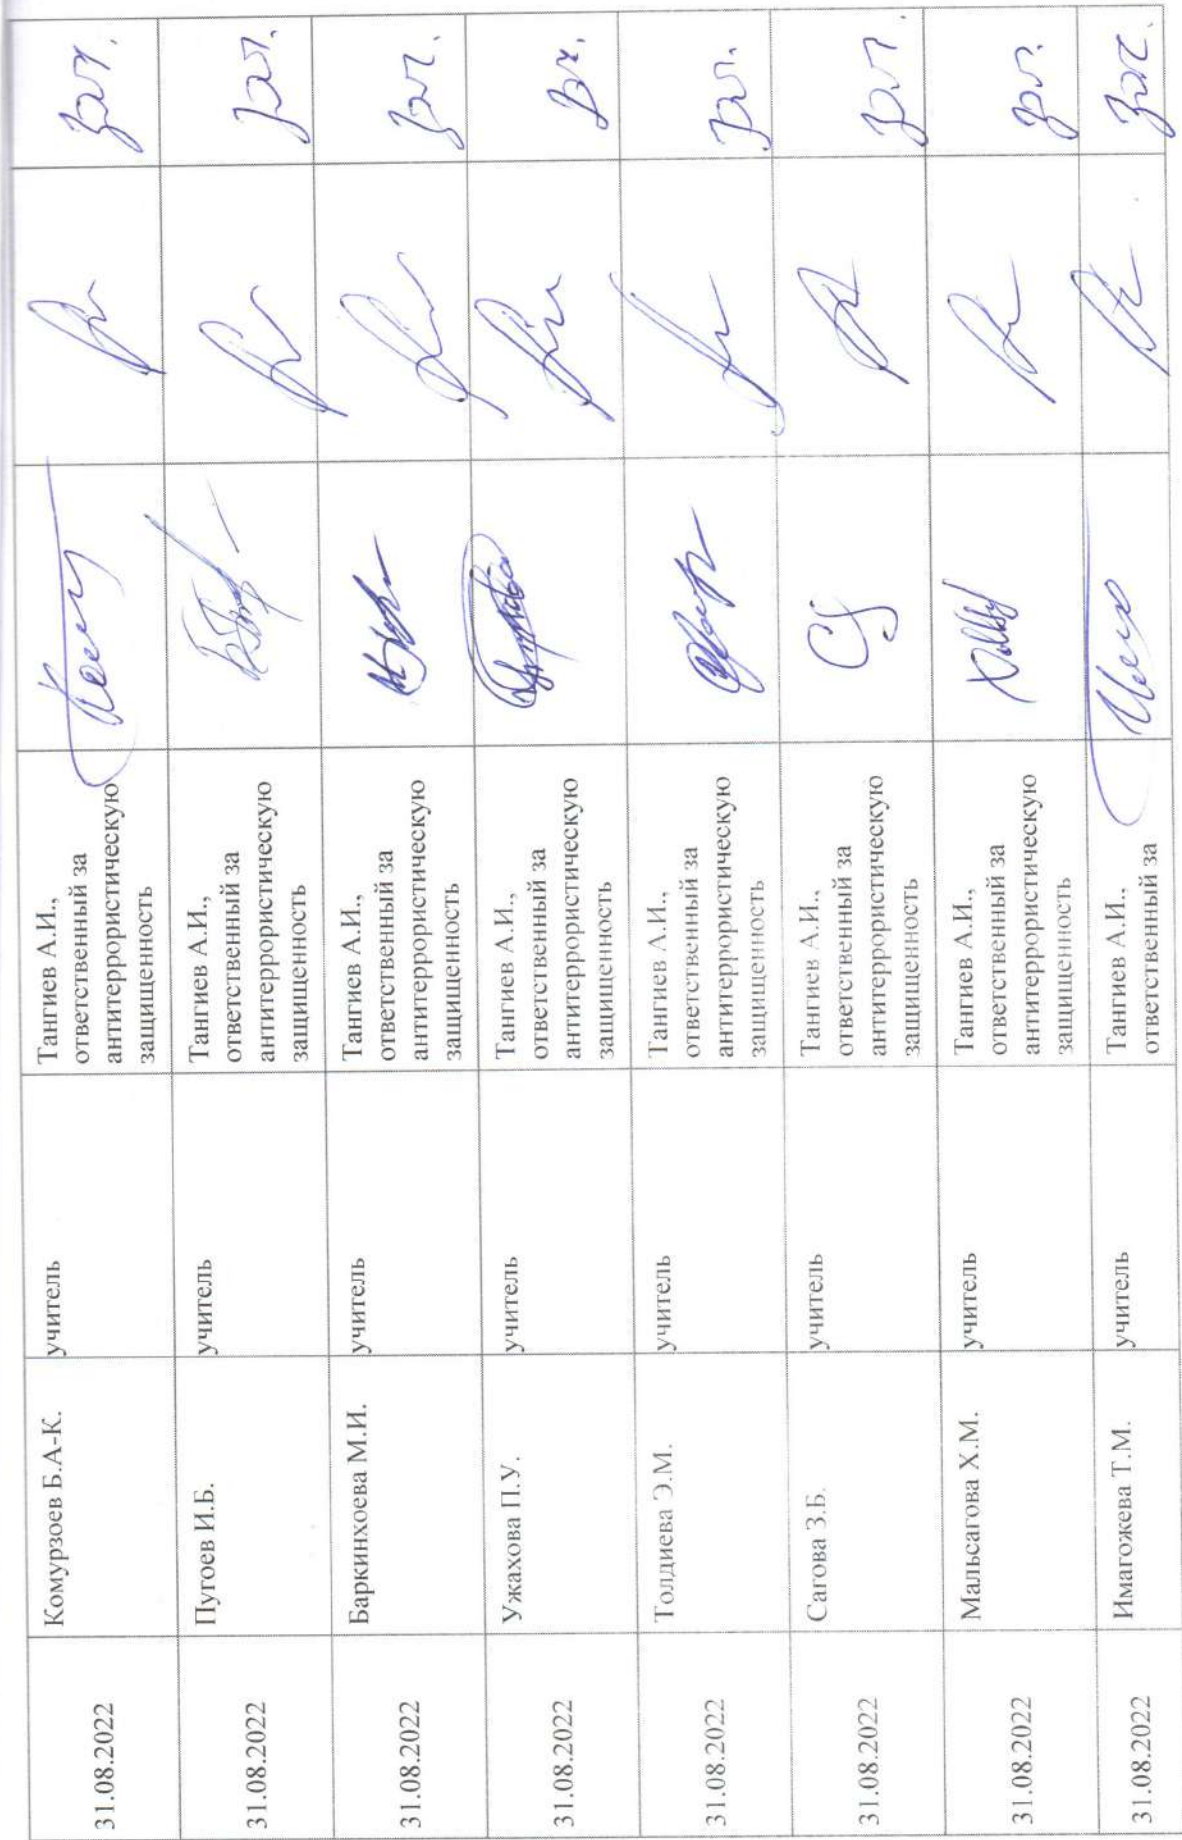 31.08.2022
Комурзоев Б.А-К.
учитель
Тангиев А.И.,
ответственный за
антитеррористическую
защищенность
зач.
31.08.2022
Пугоев И.Б.
учитель
Тангиев А.И.,
ответственный за
антитеррористическую
защищенность
зач.
31.08.2022
Баркинхоева М.И.
учитель
Тангиев А.И.,
ответственный за
антитеррористическую
защищенность
зач.
31.08.2022
Ужахова П.У.
учитель
Тангиев А.И.,
ответственный за
антитеррористическую
защищенность
зач.
31.08.2022
Толдиева Э.М.
учитель
Тангиев А.И.,
ответственный за
антитеррористическую
защищенность
зач.
31.08.2022
Сагова З.Б.
учитель
Тангиев А.И.,
ответственный за
антитеррористическую
защищенность
зач.
31.08.2022
Мальсагова Х.М.
учитель
Тангиев А.И.,
ответственный за
антитеррористическую
защищенность
зач.
31.08.2022
Имагожева Т.М.
учитель
Тангиев А.И.,
ответственный за
зач.